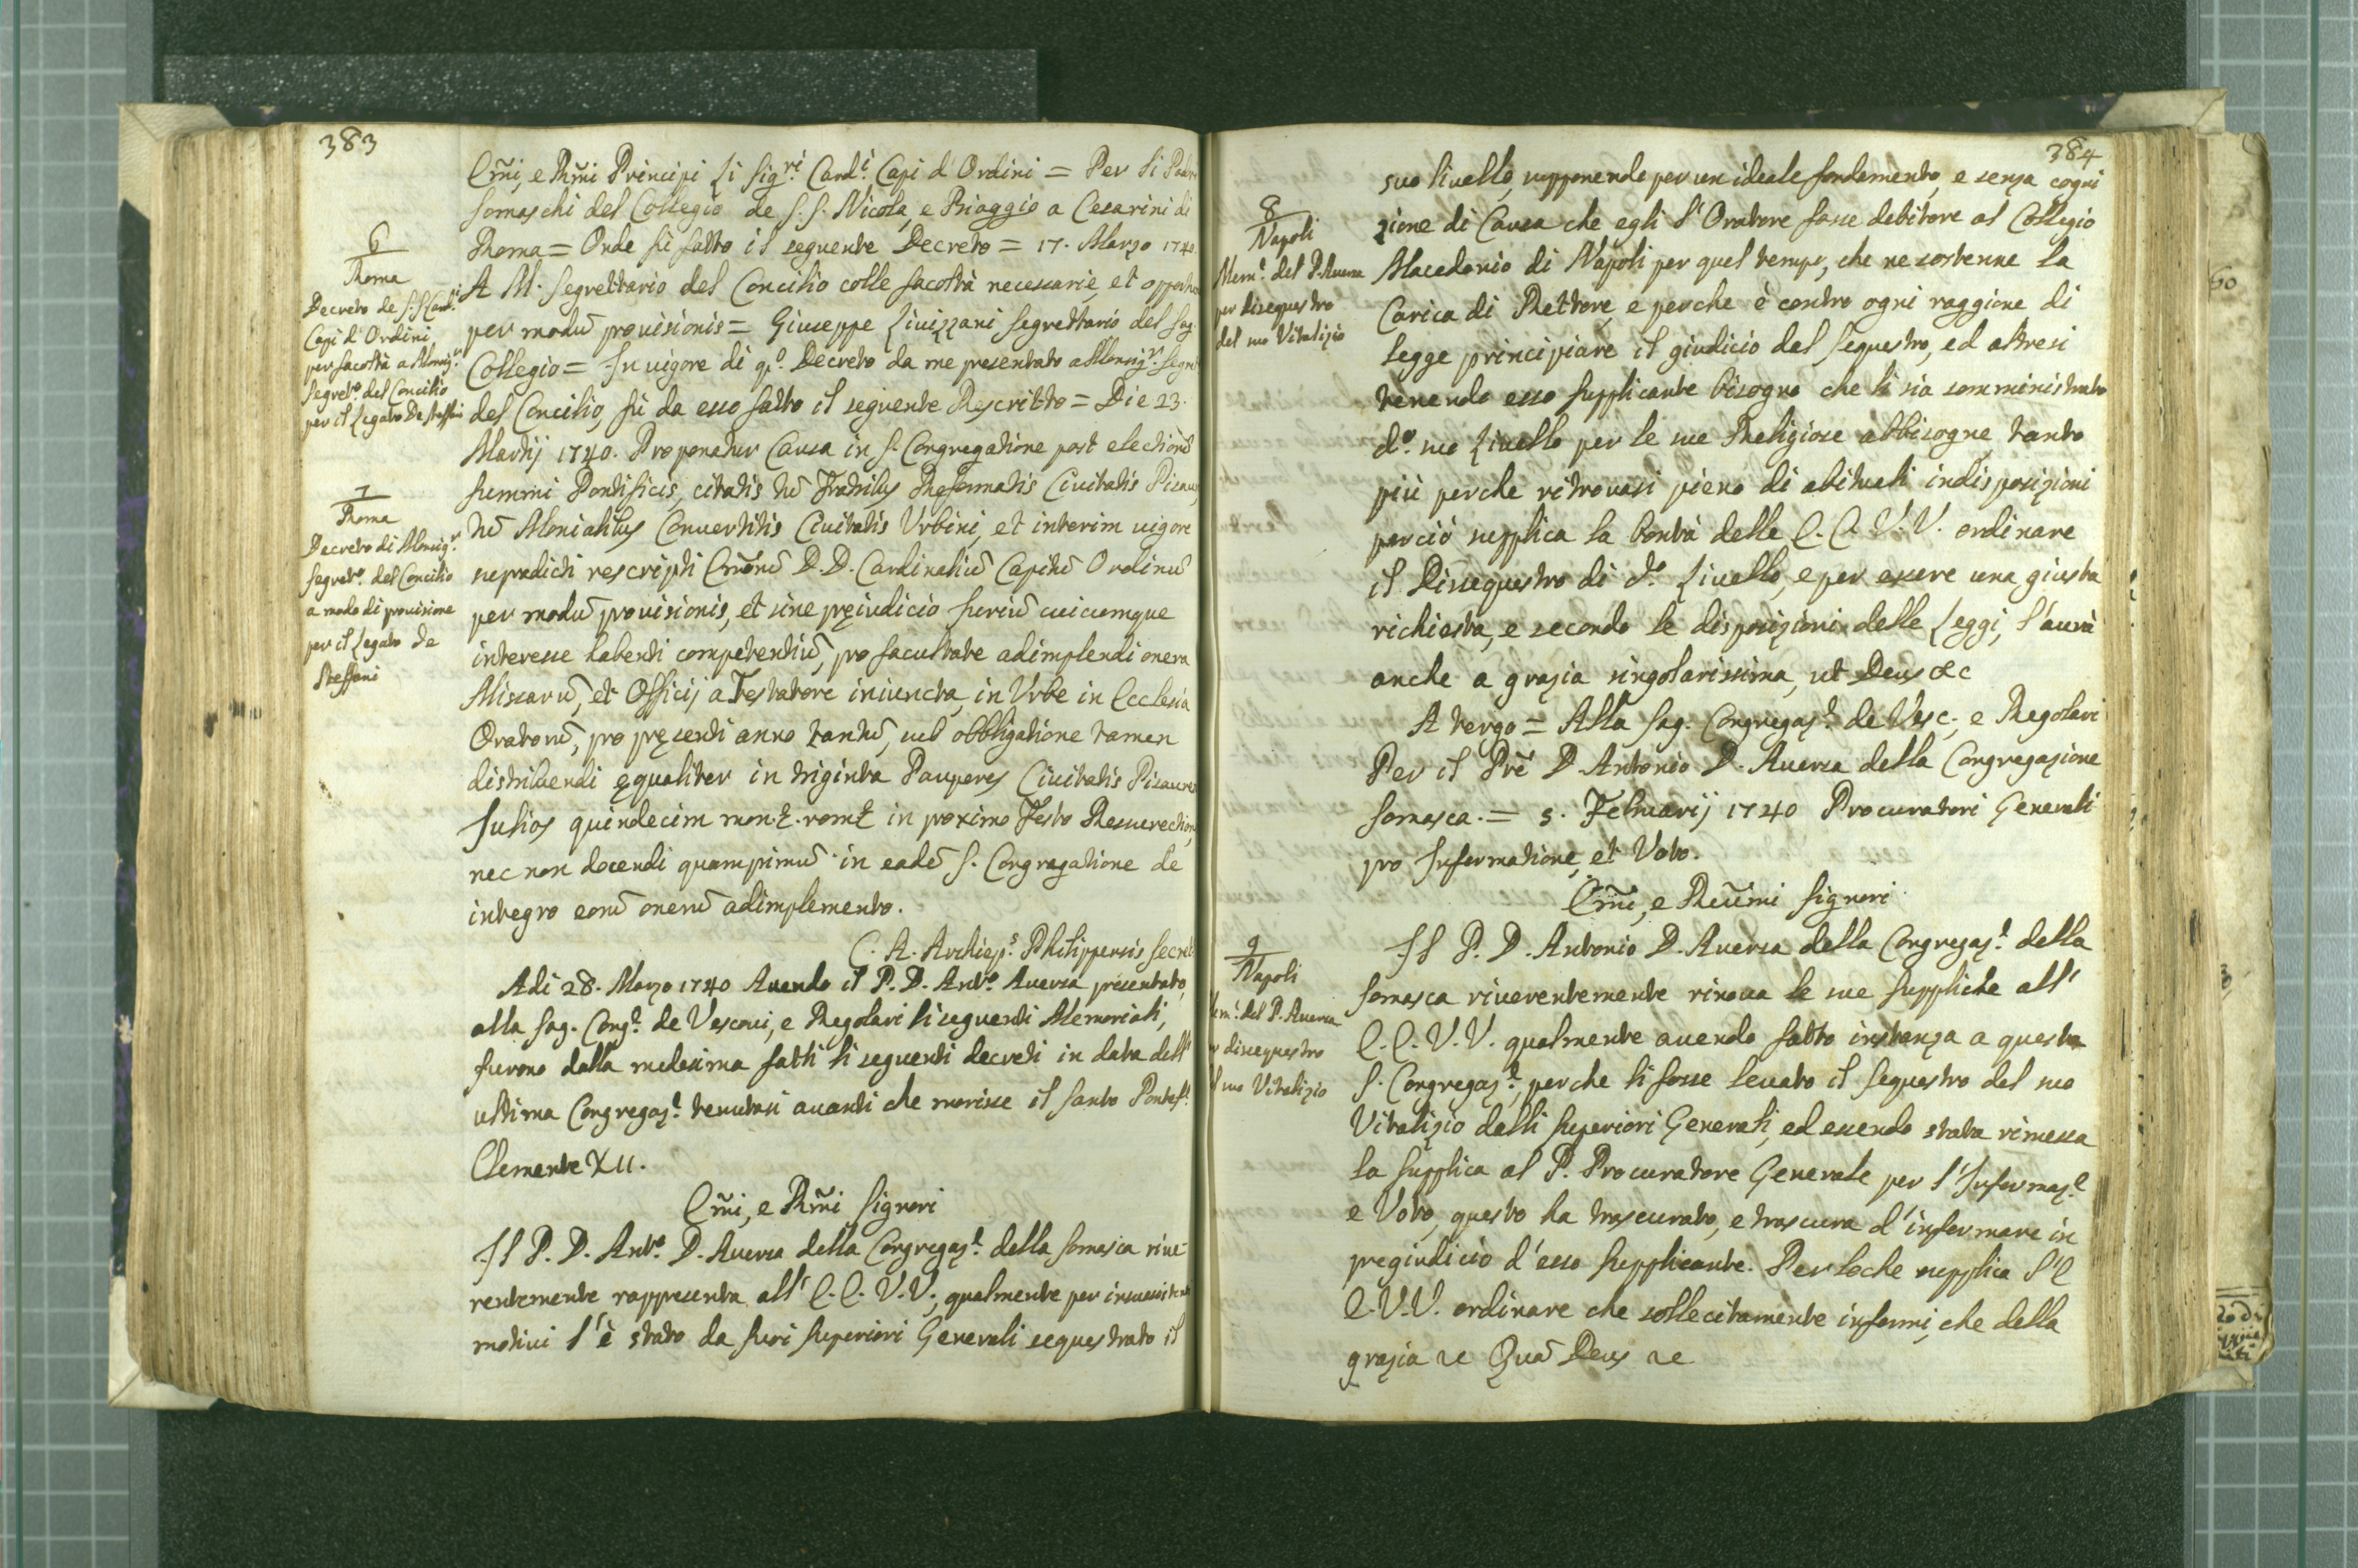 383
Em̃i, e Rm̃i Principi Li Sig.ri Card.i Capi d'Ordini = Per li Padri
Somaschi del Collegio de S.S. Nicola, e Biaggio a Cesarini di
Roma = Onde fù fatto il seguente Decreto = 17. Marzo 1740
A M. Segrettario del Concilio colle facoltà necessarie, et opport
per modũ provisionis = Giuseppe Livizzani Segrettario del Sag.
Collegio = In vigore di q.o Decreto da me presentato a Monsig.r Segret
del Concilio, fù da esso fatto il seguente Rescritto = Die 23.
Martij 1740. Proponatur Causa in S. Congregatione post electionẽ
summi Pontificis, citatis tũ Fratribus Reformatis Civitatis Pisaur
tũ Monialibus Convertitis Civitatis Urbini, et interim vigore
supradicti rescripti Em̃orũ D.D. Cardinaliũ Capitũ Ordinũ
per modũ provisionis, et sine pręiudicio Juriũ cuicumque
interesse habenti competentiũ, pro facultate adimplendi onera
Missarũ, et Officij a Testatore iniuncta, in Urbe in Ecclesia
Oratorũ, pro pręsenti anno tantũ, sub obbligatione tamen
distribuendi ęqualiter in triginta Pauperes Civitatis Pisauren
Julios quindecim mon.t rom.t in proximo Festo Resurection
nec non docendi quamprimũ in eadẽ S. Congregatione de
integro eorũ onerũ adimplemento.
C. A. Archiep.s Philippensis Secret
Adi 28. Marzo 1740 Avendo il P. D. Ant.o Aversa presentato,
alla Sag. Cong.e de Vescovi, e Regolari li seguenti Memoriali,
furono dalla medesima fatti li seguenti decreti in data dell'
ultima Congregaz.e tenutasi avanti che morisse il Santo Pontef.e
Clemente XII.
Em̃i, e Rm̃i Signori
Il P. D. Ant.o D. Aversa della Congregaz.e della Somasca rive-
rentemente rappresenta all' E.E. V.V., qualmente per insussistenti
motivi l'è stato da suoi Superiori Generali sequestrato il
6
Roma
Decreto de S.S. Card.i
Capi d'Ordini
per facoltà a Monsig.r
Segret.o del Concilio
per il Legato De Steffani
7
Roma
Decreto di Monsig.r
Segret.o del Concilio
a modo di provisione
per il Legato de
Steffani
384
suo livello, supponendo per un ideale fondamento, e senza cogni
zione di Causa che egli l'Oratore fosse debitore al Collegio
Macedonio di Napoli per quel tempo, che ne sostenne la
Carica di Rettore, e perche è contro ogni raggione di
legge principiare il giudicio dal sequestro, ed altresi
tenendo esso supplicante bisogno che li sia somministrato
d.o suo Livello per le sue Religiose abbisogne, tanto
più perche ritrovasi pieno di abituali indisposizioni
perciò supplica la bontà delle E.E. V.V. ordinare
il Disequestro di d.o Livello, e per essere una giusta
richiesta, e secondo le disposizioni delle Leggi, l'avrà
anche a grazia singolarissima, ut Deus &c
A tergo = Alla Sag. Congregaz.e de Vesc., e Regolari
Per il Prẽ D. Antonio D. Aversa della Congregazione
Somasca. = 5. Februarij 1740 Procuratori Generali
pro Informatione, et Voto.
Em̃i, e Reũmi Signori
Il P. D. Antonio D. Aversa della Congregaz.e della
Somasca riverentemente rinova le sue suppliche all'
E.E. V.V. qualmente avendo fatto instanza a questa
S. Congregaz.e, perche li fosse levato il sequestro del suo
Vitalizio dalli Superiori Generali, ed essendo stata rimessa
la supplica al P. Procuratore Generale per l'Informaz.e
e Voto, questo ha trascurato, e trascura d'informare in
pregiudicio d'esso supplicante. Perloche supplica l'E
E. V.V. ordinare che sollecitamente informi, che della
grazia &c Quã Deus &c
8
Napoli
Mem.e del P. Aversa
per disequestro
del suo Vitalizio
9
Napoli
em.e del P. Aversa
disequestro
suo Vitalizio